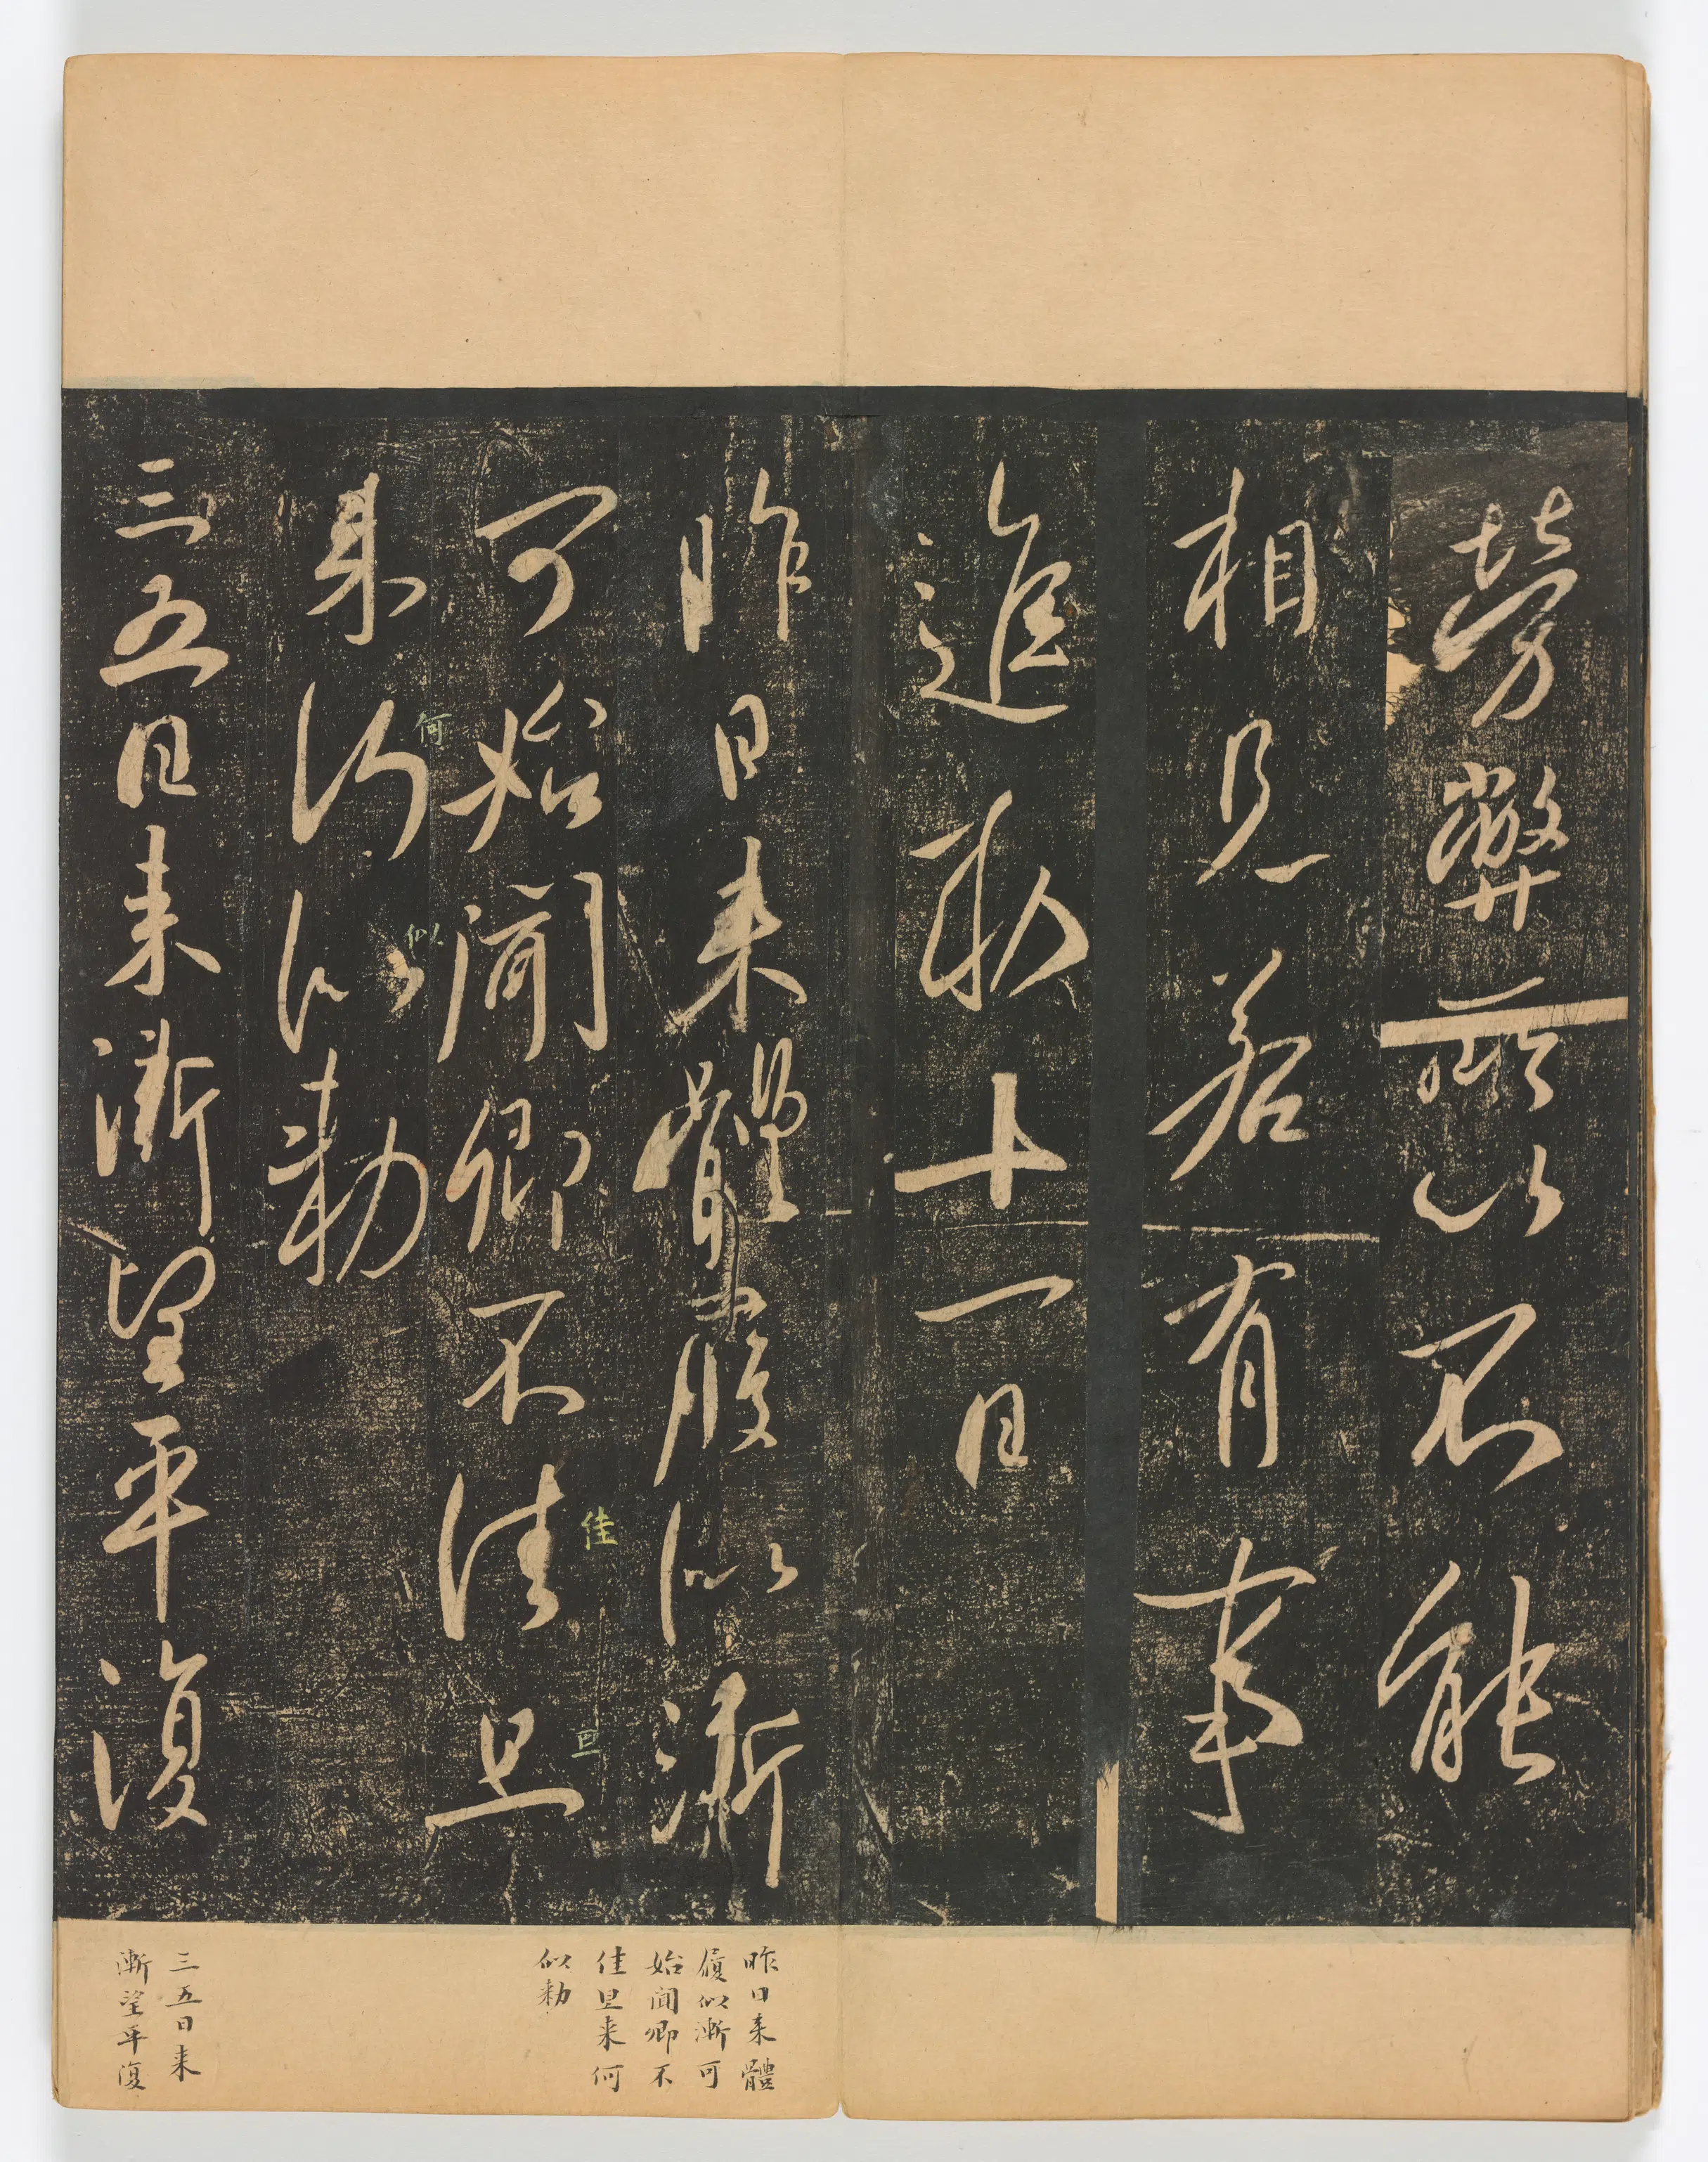 勞弊以不能
相見若有事
進勅十一日
昨日来體履似漸
可始聞卿不佳旦
佳
旦
来何似勅
何
似
三五日来漸望平復
昨日来體
履似漸可
始聞卿不
佳里来何
似勅
三五日来
漸望平復